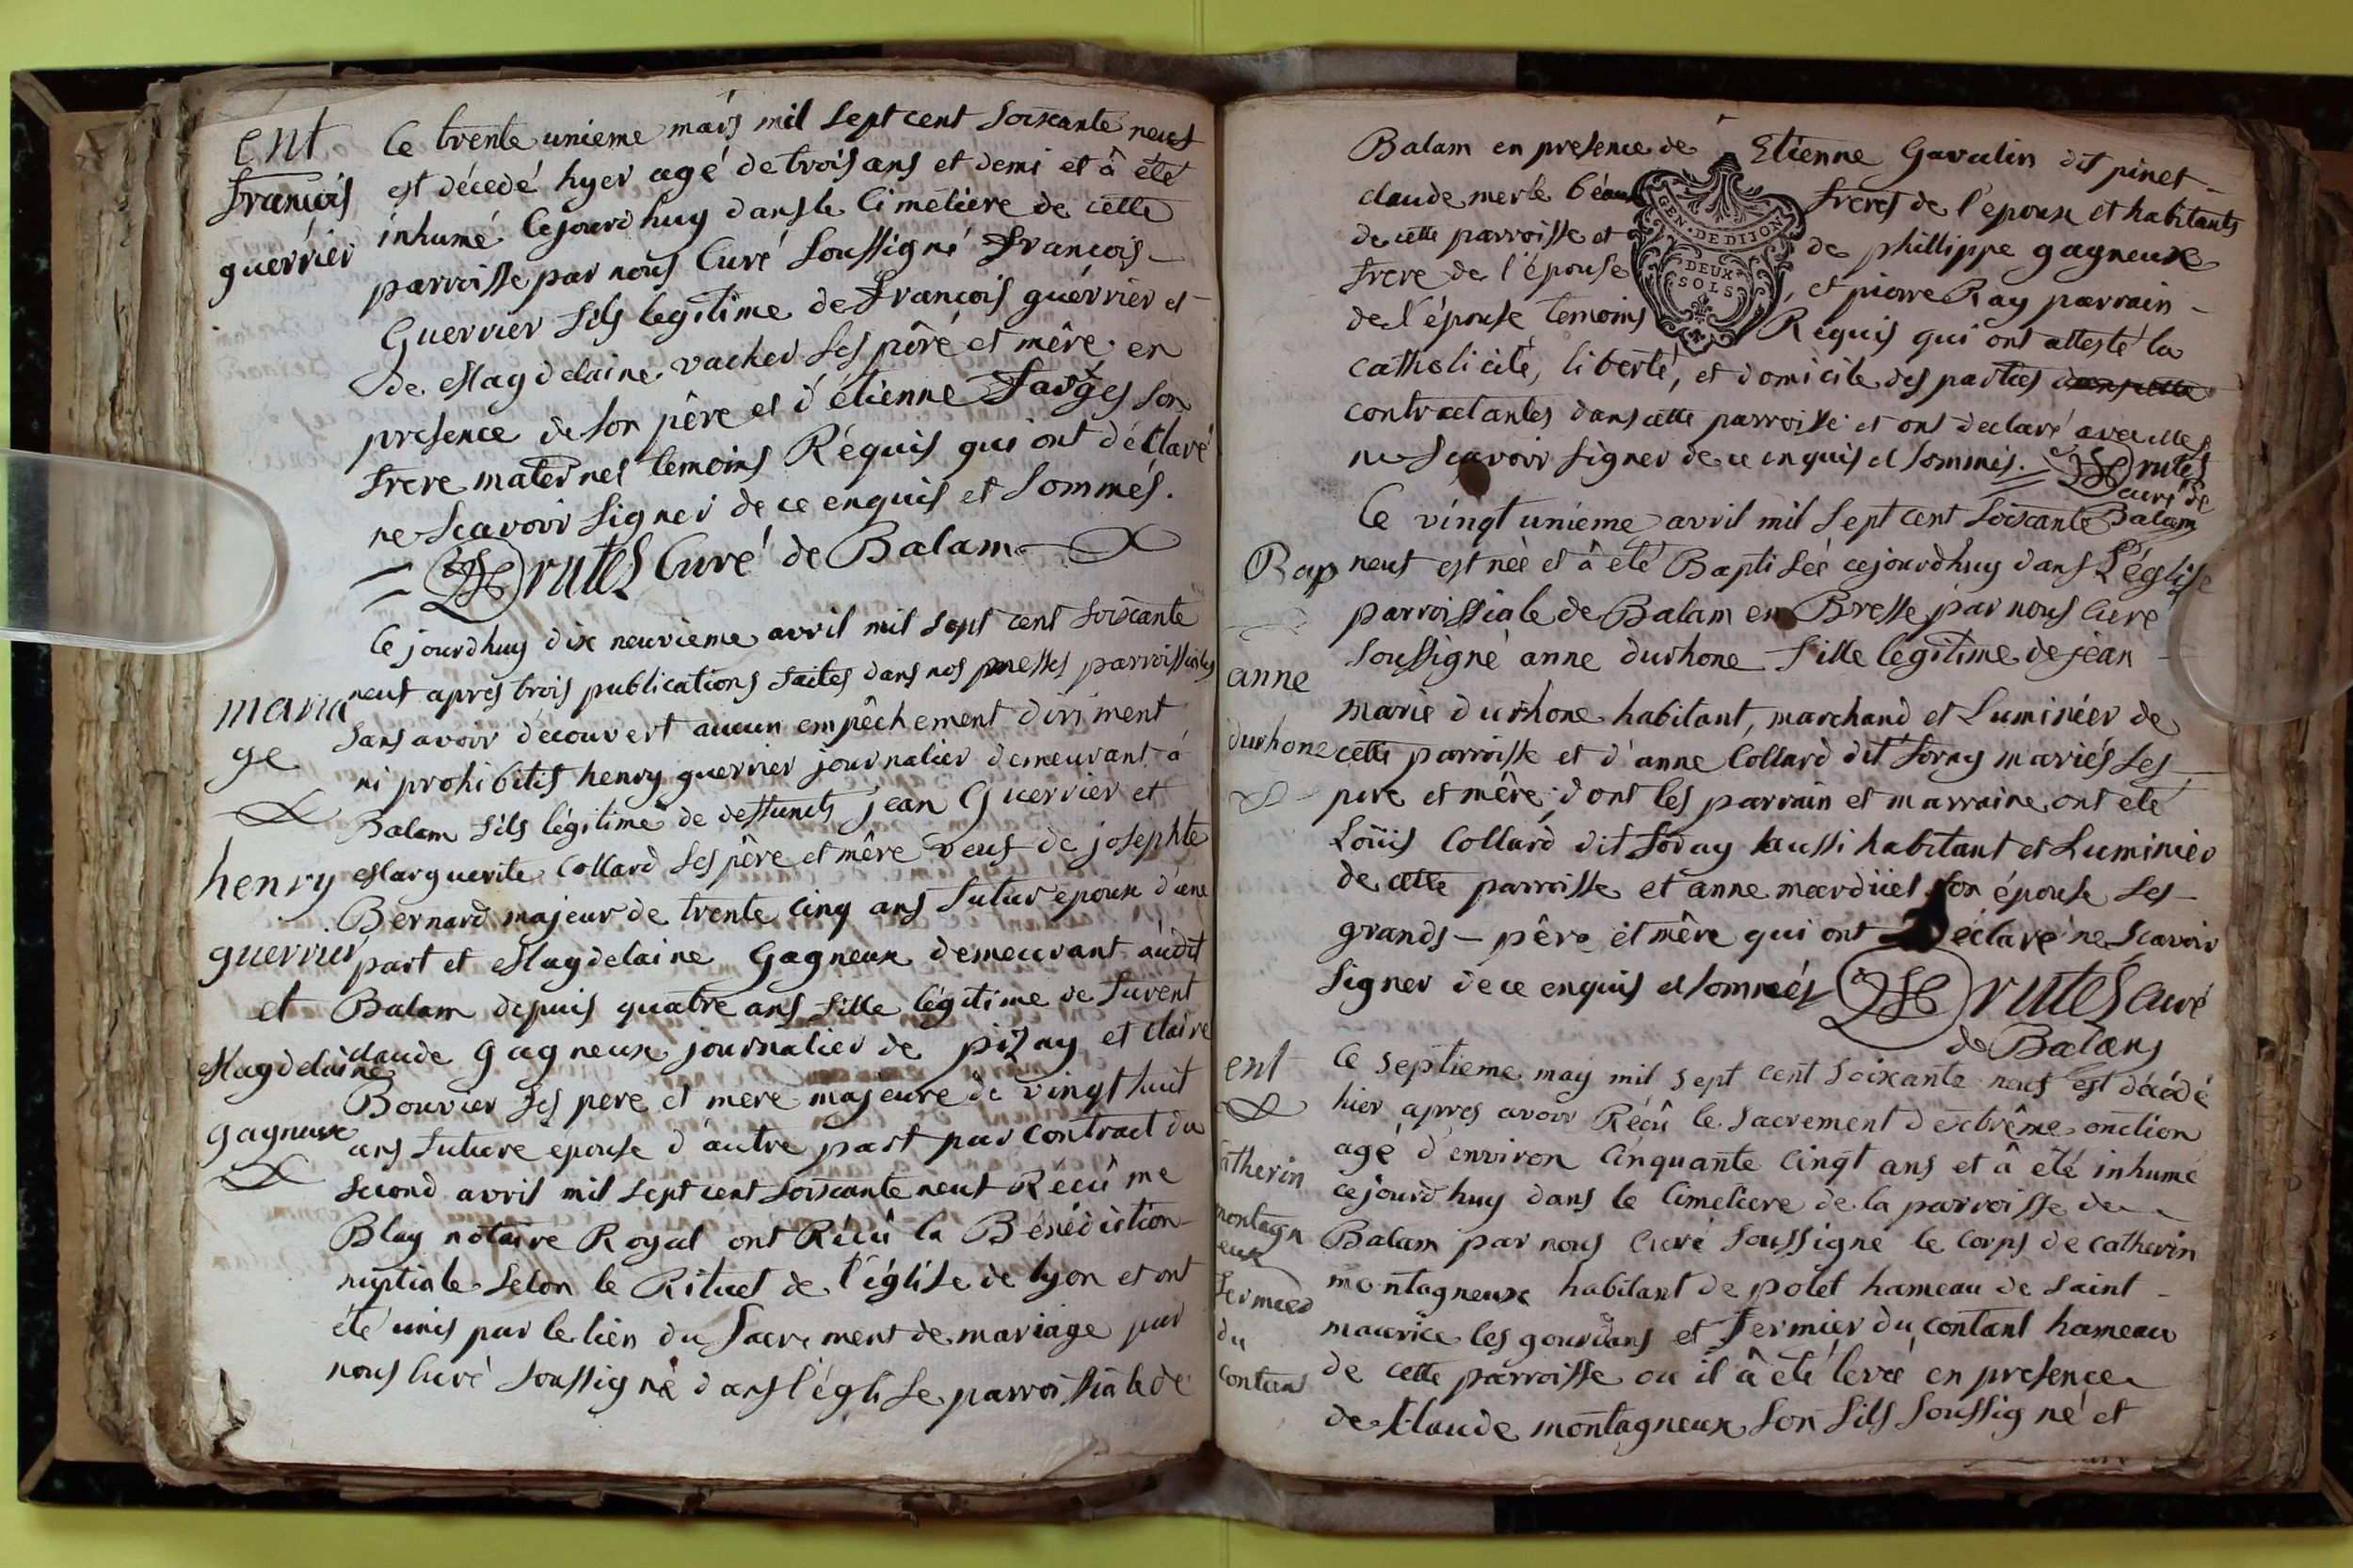 ent
françois
guérrier
Ce trente unieme mars mil sept cent soixante neuf
est décedé hyer agé de trois ans et demi et â été
inhumé cejourdhuy dans le cimetiere de cette
parroisse par nous curé soussigné françois
Guerrier fils legitime de françois guérrier et
de Magdelaine vacher ses pêre et mêre en
presence de son pêre et d'étienne farges son
frere maternel temoins Réquis qui ont déclaré
ne scavoir signer de ce enquis et sommés.
Drutel Curé de Balam
maria
ge
henry
guerrier
et
Magdelaine
gagneux
Cejourdhuy dix neuvieme avril mil sept cent soixante
neuf apres trois publications faites dans nos messes parroissiales
sans avoir découvert aucun empêchement diriment
ni prohibitif henry guerrier journalier demeurant à
Balam fils légitime de deffunts jean Guerrier et
Marguerite Collard ses pêre et mêre veuf de josephte
Bernard majeur de trente cinq ans futur epoux d'une
part et Magdelaine Gagneux demeurant audit
Balam depuis quatre ans fille légitime de furent
claude Gagneux journalier de pizay et claire
Bouvier ses pere et mere majeure de vingt huit
ans future épouse d'autre part par contract du
second avril mil sept cent soixante neuf Récû me
Blay notaire Royal ont Récû la Bénédiction
nuptiale selon le Rituel de l'église de lyon et ont
été unis par le lien du sacrement de mariage par
nous curé soussigné dans l'église parroissiale de
Balam en presence de Etienne Gavulin dit pinet
claude merle béaux freres de l'epoux et habitants
de cette parroisse et de phillippe gagneux
frere de l'épouse, et pierre Ray parrain
de l'épouse temoins Requis qui ont attesté la
catholicité, liberté, et domicile des parties
contractantes dans cette parroisse et ont declaré avec elles
ne scavoir signer de ce enquis et sommés. Drutel
curé de
Balam
GEN. DE DIJON
DEUX
SOLS
Bap
anne
durhone
Ce vingt unieme avril mil sept cent soixante
neuf est née et â été Baptisée cejourdhuy dans l'église
parroissiale de Balam en Bresse par nous curé
soussigné anne durhone fille legitime de jean
marie durhone habitant, marchand et Luminier de
cette parroisse et d'anne Collard dit foray mariés ses
pere et mêre; dont les parrain et marraine ont été
Loüis Collard dit foray aussi habitant et Luminier
de cette parroisse et anne mardüel son épouse ses
grands-pêre et mêre qui ont déclaré ne scavoir
signer de ce enquis et sommés Drutel curé
de Balam
ent
catherin
montagn
eux
fermier
du
contant
Ce septieme may mil sept cent soixante neuf est décédé
hier apres avoir Récû le sacrement d'extrême onction
agé d'environ cinquante cinqt ans et â été inhumé
cejourdhuy dans le cimetiere de la parroisse de
Balam par nous curé soussigné le corps de catherin
montagneux habitant de polet hameau de saint
maurice les gourdans et fermier du contant hameau
de cette parroisse ou il â été levé en presence
de Claude montagneux son fils soussigné et